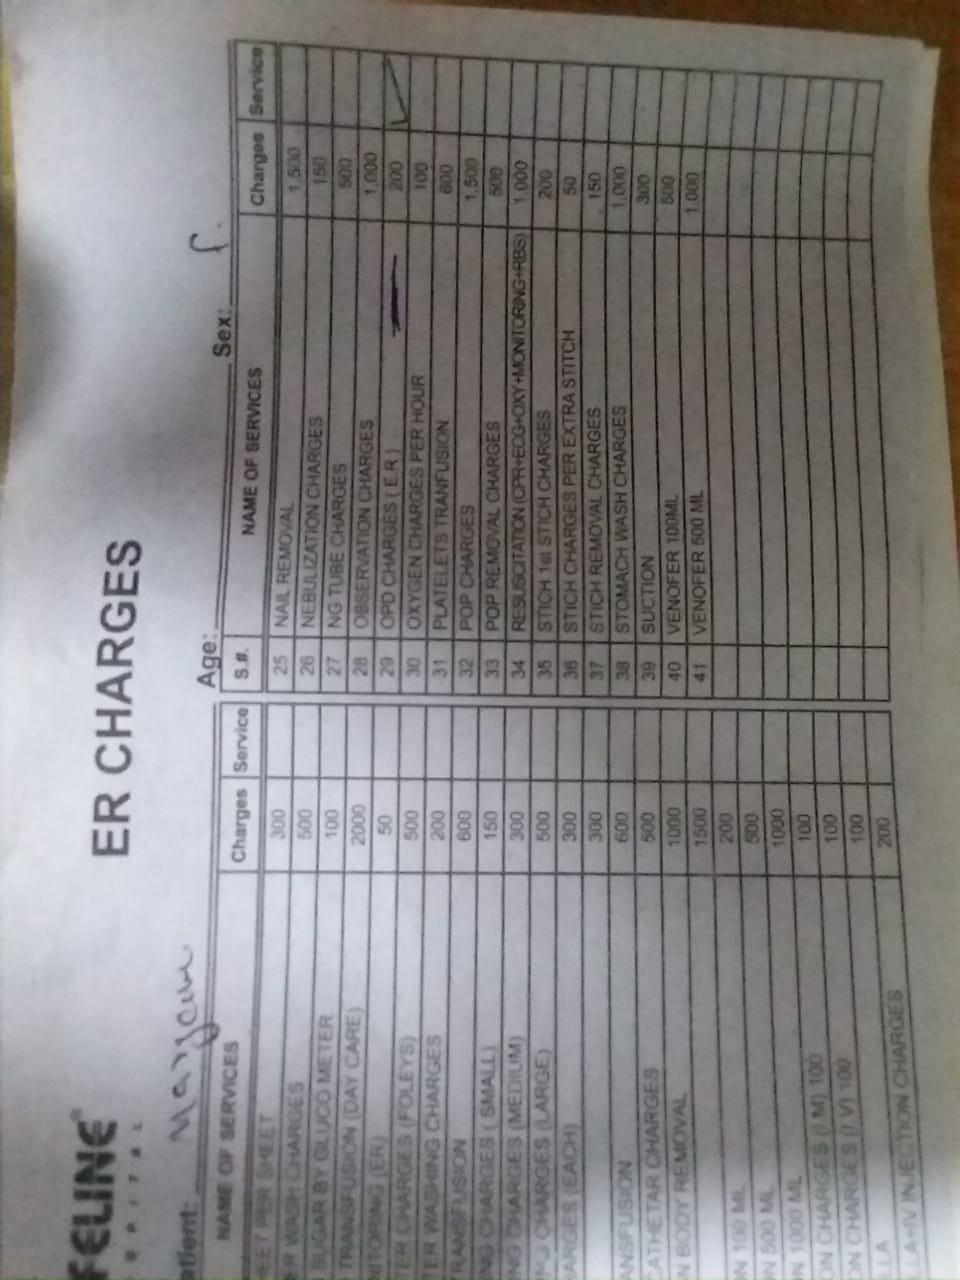 FELINE
ER CHARGES
Maryam
Age: Sex: f.
NAME OF SERVICES Charges Service
SHEET PER SHEET 300
WASH CHARGES 500
SUGAR BY GLUCO METER 100
TRANSFUSION (DAY CARE) 2000
(ER) 50
CHARGES (FOLEYS) 500
WASHING CHARGES 200
600
CHARGES ( SMALL) 150
CHARGES (MEDIUM) 300
CHARGES (LARGE) 500
(EACH) 300
300
600
CHARGES 500
BODY REMOVAL 1000
1500
100 ML 200
500 ML 500
1000 ML 1000
CHARGES (I.M) 100 100
CHARGES (I.V) 100 100
100
200
INJECTION CHARGES
S.#. NAME OF SERVICES Charges Service
25 NAIL REMOVAL 1,500
26 NEBULIZATION CHARGES 150
27 NG TUBE CHARGES 500
28 OBSERVATION CHARGES 1,000
29 OPD CHARGES ( E.R ) 200
30 OXYGEN CHARGES PER HOUR 100
31 PLATELETS TRANFUSION 600
32 POP CHARGES 1,500
33 POP REMOVAL CHARGES 500
34 RESUSCITATION (CPR+ECG+OXY+MONITORING+RBS) 1,000
35 STICH 1st STICH CHARGES 200
36 STICH CHARGES PER EXTRA STITCH 50
37 STICH REMOVAL CHARGES 150
38 STOMACH WASH CHARGES 1,000
39 SUCTION 300
40 VENOFER 100ML 500
41 VENOFER 500 ML 1,000